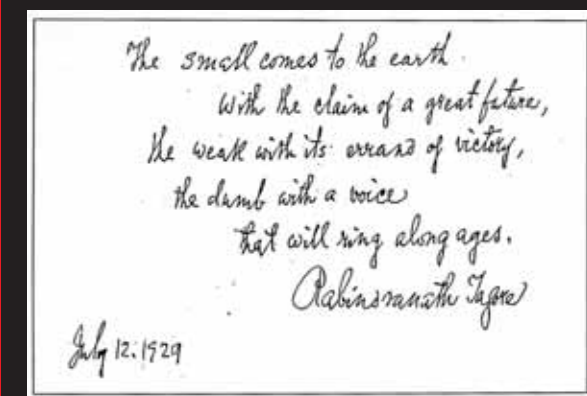 The small comes to the earth.
with the claim of a great future,
the weak with its errand of victory,
the dumb with a voice
that will ring along ages.
Rabindranath Tagore
July 12. 1929